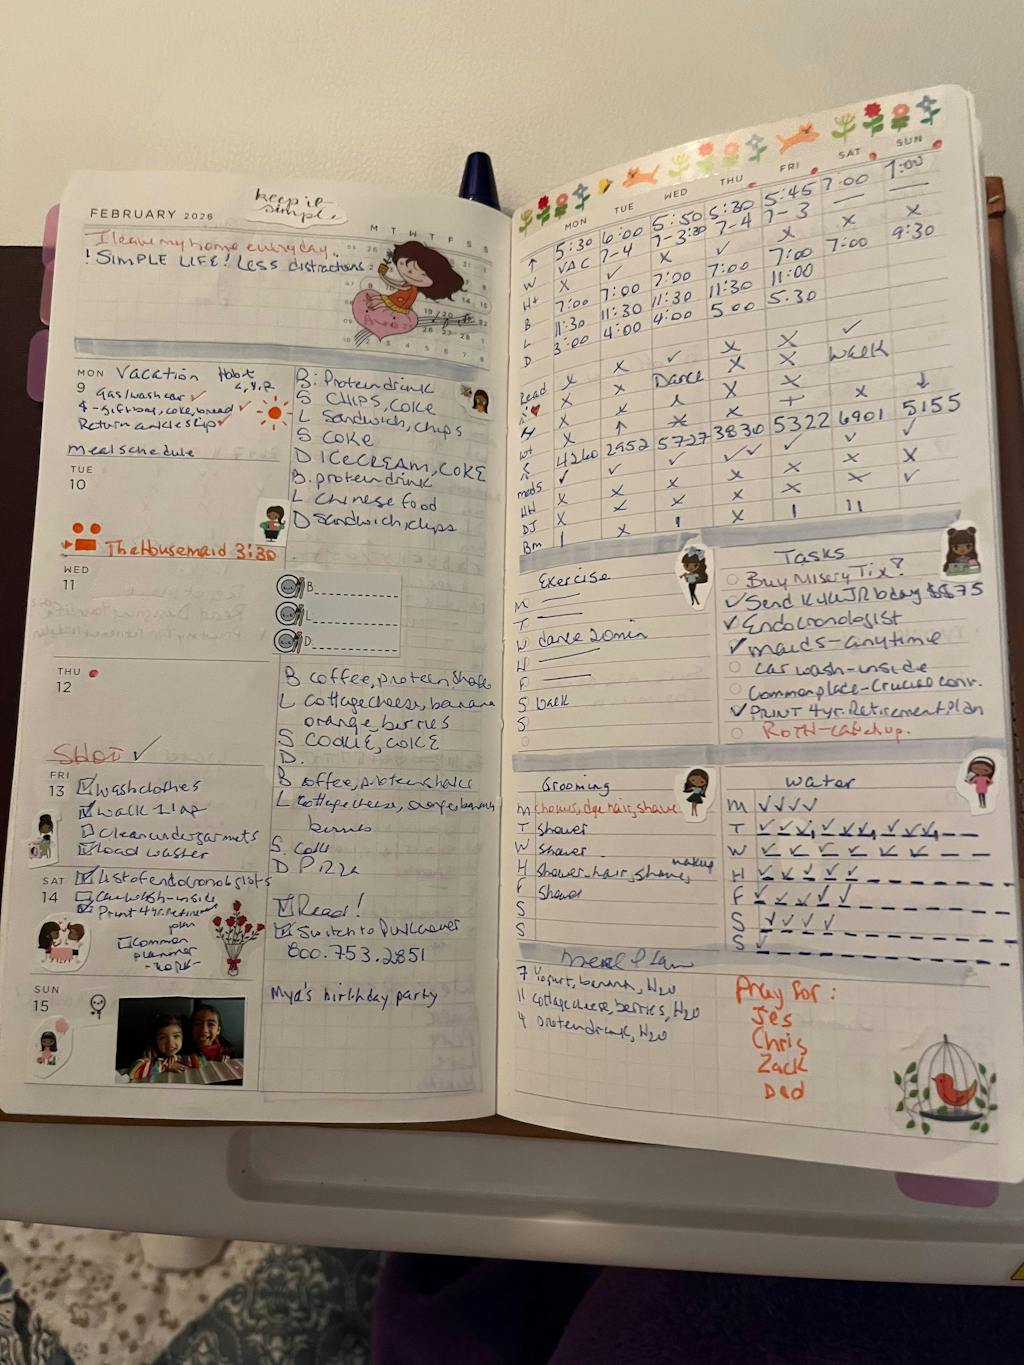 keep it
simple
FEBRUARY 2026
M T W T F S S
I leave my home everyday.
! SIMPLE LIFE! Less distractions
MON
9
Vacation
Gas/wash car ✓
$ - giftbag, coke, bread ✓
Return ankle slip ✓
meal schedule
TUE
10
The Housemaid 3:30
WED
11
THU
12
SHOT ✓
FRI
13
☑ wash clothes
☑ walk 1 lap
☐ Clean undergarmets
☑ Load washer
SAT
14
☑ List of endocronologists
☐ Car wash-inside
☑ Print 4 yr. Retirement
plan
☐ Common
planner
SUN
15
B: Protein drink
S CHIPS, COKE
L Sandwich, chips
S COKE
D ICE CREAM, COKE
B. protein drink
L Chinese food
D Sandwich, chips
B.
L.
D.
B coffee, protein shake
L cottage cheese, banana
orange, berries
S COOKIE, COKE
D.
B coffee, protein shake
L cottage cheese, orange, banana
berries
S. coke
D Pizza
☑ Read!
☑ Switch to
800.753.2851
Mya's birthday party
MON TUE WED THU FRI SAT SUN
↑ 5:30 6:00 5:50 5:30 5:45 7:00 7:00
W VAC 7-4 7-3:30 7-4 7-3 —
H+ X ✓ X ✓ X X X
B 7:00 7:00 7:00 7:00 7:00 7:00 9:30
L 11:30 11:30 11:30 11:30 11:00
D 3:00 4:00 4:00 5:00 5:30
Read X X ✓ X X ✓
X X Dance X X walk
wt
4260 2952 5727 3830 5322 6901 5155
meds ✓ ✓ ✓ ✓✓ ✓ ✓ ✓
HH X X X X X X X
DJ X X X X X X ✓
Bm | X | X | ||
Exercise
M
T
W dance 20min
H
F
S walk
S
Tasks
Buy Misery Tix?
✓ Send K4WJR bday $$75
✓ Endocronologist
✓ maids-anytime
Car wash-inside
Commonplace-Crucial conv.
✓ PRINT 4yr. Retirement Plan
ROTH-catchup.
Grooming
M shower, dye hair, shave
T shower
W shower
makeup
H shower, hair, shave,
F Shower
S
S
Water
M ✓✓✓✓
T
W
H
F
S
S
Meal Plan
7 Yogurt, banana, H2O
11 cottage cheese, berries, H2O
4 protein drink, H2O
Pray for:
Jes
Chris
Zack
Dad